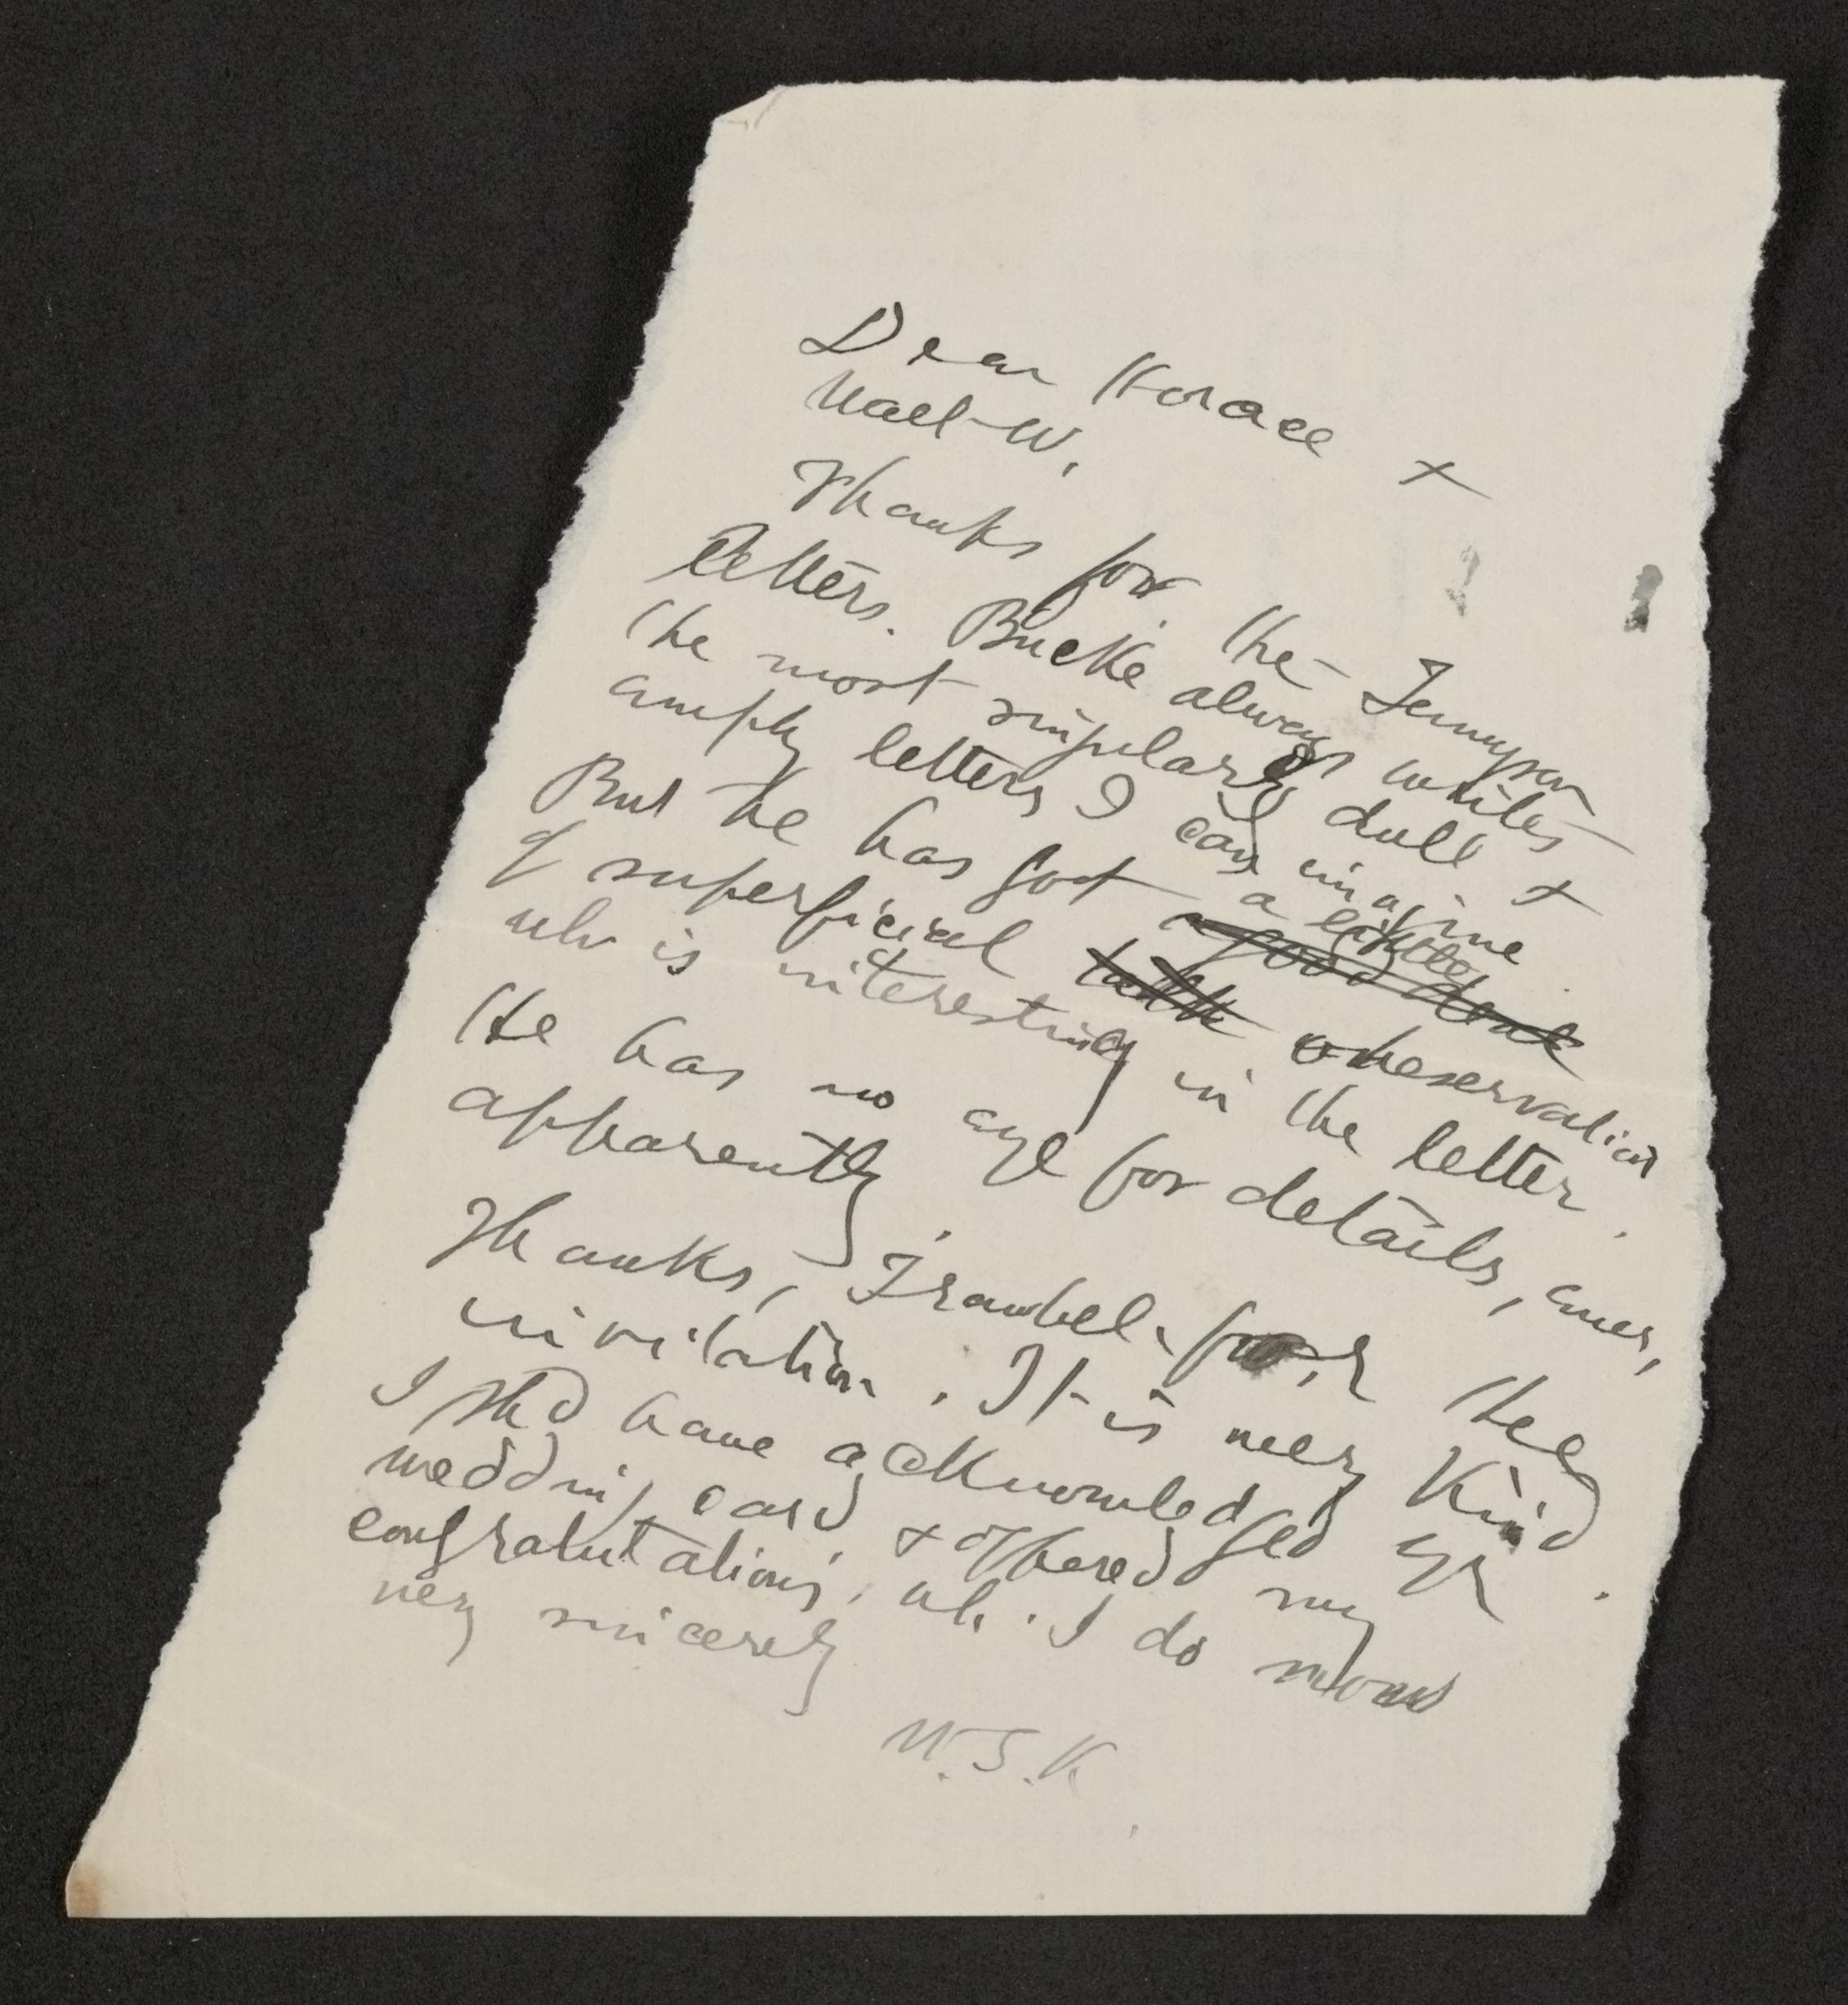 Dear Horace +
Walt W.
Thanks for the Tennyson
letters. Bucke always writes
the most singularly dull +
empty letters I can imagine
But he has got a little
a good deal
of superficial talk observation
wh is interesting in the letter.
He has no eye for details,
apparently.
Thanks, Traubel for the
invitation. It is very kind.
I shd have acknowledged yr
wedding card, + offered my
congratulations, wh. I do now
very sincerely
W.S.K.